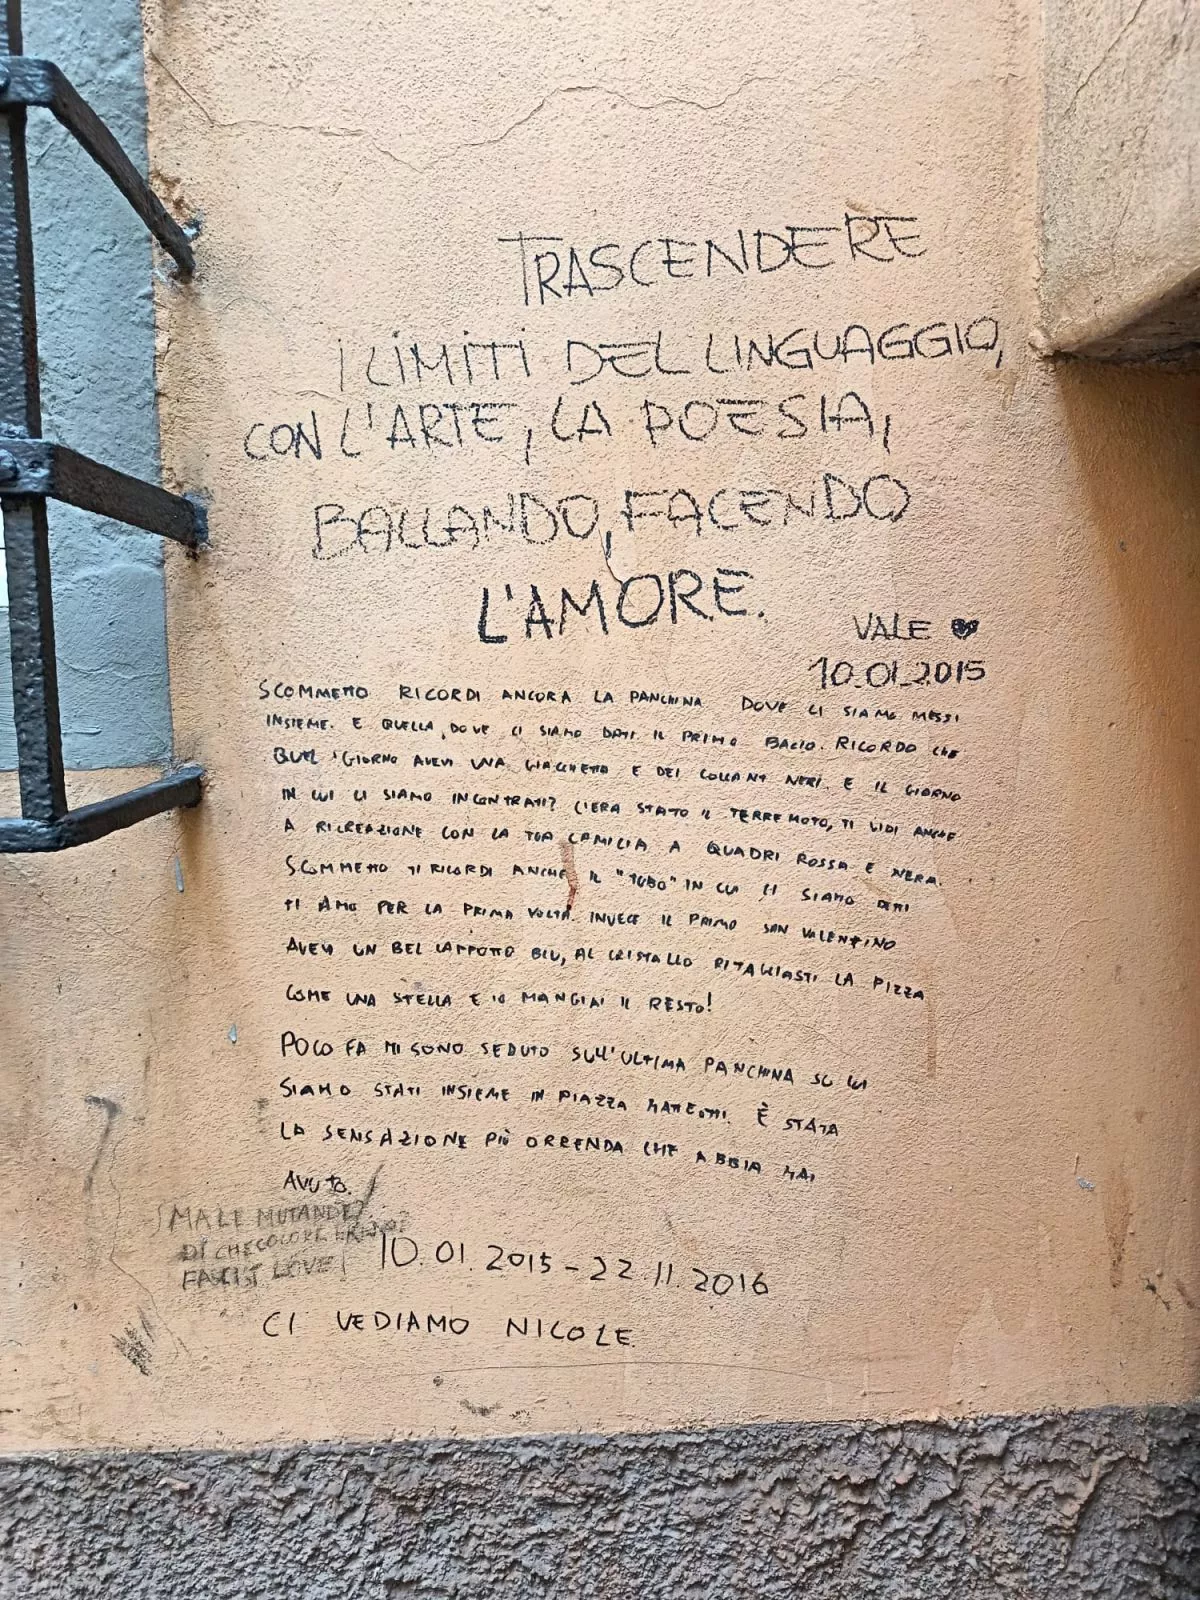 TRASCENDERE
I LIMITI DEL LINGUAGGIO,
CON L'ARTE, LA POESIA,
BALLANDO, FACENDO
L'AMORE.
VALE ♥
10.01.2015
SCOMMETTO RICORDI ANCORA LA PANCHINA DOVE CI SIAMO MESSI
INSIEME. E QUELLA DOVE CI SIAMO DATI IL PRIMO BACIO. RICORDO CHE
QUEL GIORNO AVEVI UNA GIACCHETTA E DEI COLLANT NERI. E IL GIORNO
IN CUI CI SIAMO INCONTRATI? C'ERA STATO IL TERREMOTO, TI VIDI ANCHE
A RICREAZIONE CON LA TUA CAMICIA A QUADRI ROSSA E NERA.
SCOMMETTO TI RICORDI ANCHE IL "TUBO" IN CUI CI SIAMO DETTI
TI AMO PER LA PRIMA VOLTA. INVECE IL PRIMO SAN VALENTINO
AVEVI UN BEL CAPPOTTO BLU, AL CRISTALLO RITAGLIASTI LA PIZZA
COME UNA STELLA E IO MANGIAI IL RESTO!
POCO FA MI SONO SEDUTO SULL'ULTIMA PANCHINA SU CUI
SIAMO STATI INSIEME IN PIAZZA MATTEOTTI. È STATA
LA SENSAZIONE PIÙ ORRENDA CHE ABBIA MAI
AVUTO.
MA LE MUTANDE?
DI CHE COLORE
FASCIST LOVE!
10.01.2015 - 22.11.2016
CI VEDIAMO NICOLE.